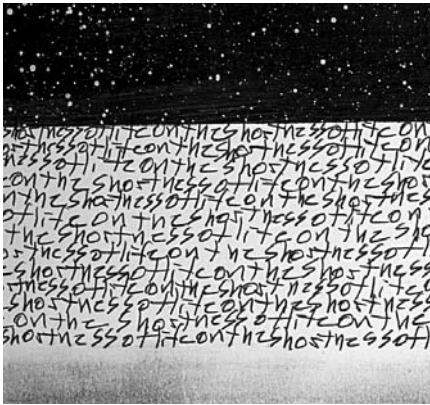 shortnessoflifeontheshortnessoflifeon
ortnessoflifeontheshortnessoflife
nessoflifeontheshortnessoflife
ontheshortnessoflifeonthesho
ntheshortnessoflifeontheshor
oflifeontheshortnessoflifeon
ntheshortnessoflifeonthesho
ortnessoflifeontheshortness
shortnessoflifeontheshortness
essoflifeontheshortnessoflife
shortnessoflifeontheshortnes
ontheshortnessoflifeonthe
shortnessoflifeontheshortnessofl